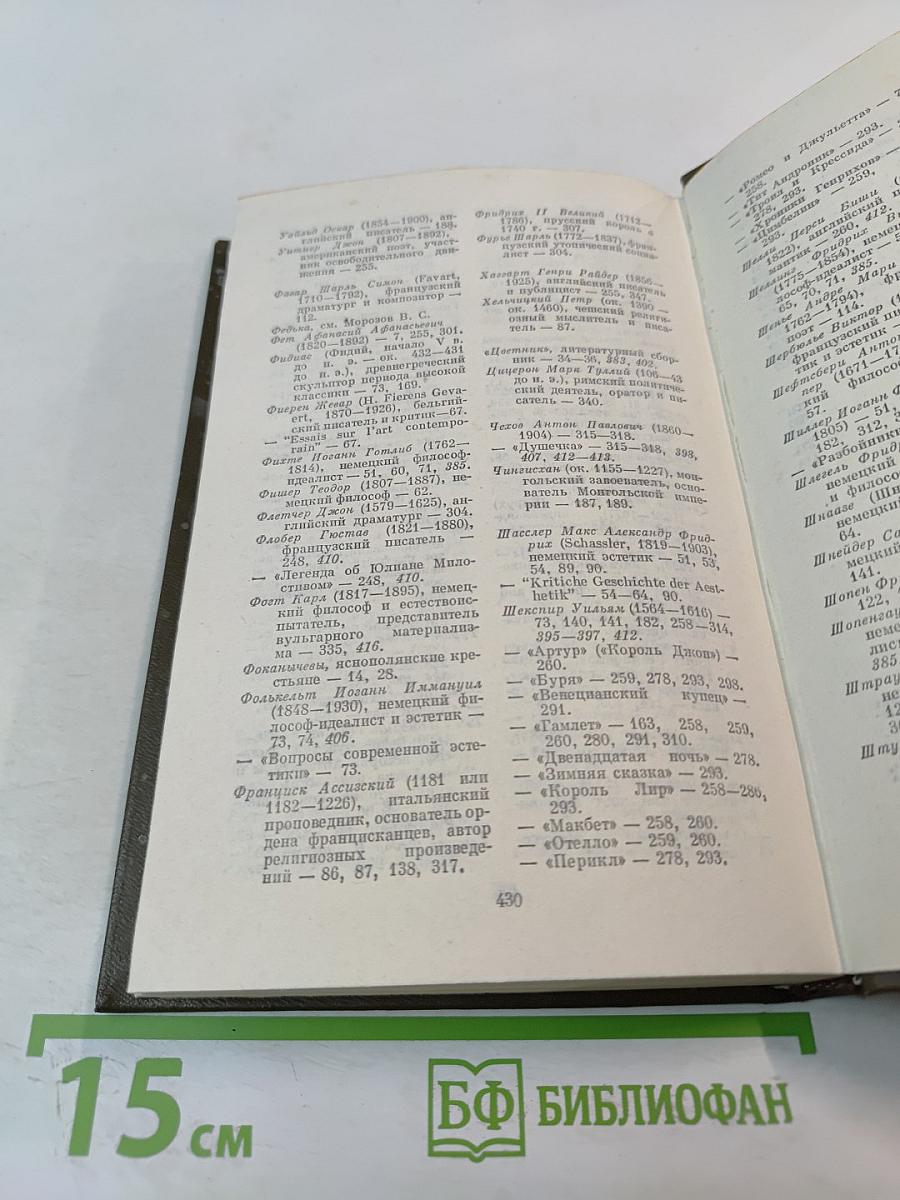 Уайльд Оскар (1854—1900), ан-
глийский писатель — 188.
Уитиер Джон (1807—1892),
американский поэт, участ-
ник освободительного дви-
жения — 255.
Фавар Шарль Симон (Favart,
1710—1792), французский
драматург и композитор —
112.
Федька, см. Морозов В. С.
Фет Афанасий Афанасьевич
(1820—1892) — 7, 255, 301.
Фидиас (Фидий, начало V в.
до н. э. — ок. 432—431
до н. э.), древнегреческий
скульптор периода высокой
классики — 73, 169.
Фиерен Жевар (H. Fierens Geva-
ert, 1870—1926), бельгий-
ский писатель и критик—67.
— "Essais sur l'art contempo-
rain" — 67.
Фихте Иоганн Готлиб (1762—
1814), немецкий философ-
идеалист — 51, 60, 71, 385.
Фишер Теодор (1807—1887), не-
мецкий философ — 62.
Флетчер Джон (1579—1625), ан-
глийский драматург — 304.
Флобер Гюстав (1821—1880),
французский писатель —
248, 410.
— «Легенда об Юлиане Мило-
стивом» — 248, 410.
Фогт Карл (1817—1895), немец-
кий философ и естествоис-
пытатель, представитель
вульгарного материализ-
ма — 335, 416.
Фоканычевы, яснополянские кре-
стьяне — 14, 28.
Фолькельт Иоганн Иммануил
(1848—1930), немецкий фи-
лософ-идеалист и эстетик —
73, 74, 406.
— «Вопросы современной эсте-
тики» — 73.
Франциск Ассизский (1181 или
1182—1226), итальянский
проповедник, основатель ор-
дена францисканцев, автор
религиозных произведе-
ний — 86, 87, 138, 317.
Фридрих II Великий (1712—
1786), прусский король с
1740 г. — 307.
Фурье Шарль (1772—1837), фран-
цузский утопический социа-
лист — 304.
Хаггарт Генри Райдер (1856—
1925), английский писатель
и публицист — 255, 347.
Хельчицкий Петр (ок. 1390 —
ок. 1460), чешский религи-
озный мыслитель и писа-
тель — 87.
«Цветник», литературный сбор-
ник — 34—36, 383, 402.
Цицерон Марк Туллий (106—43
до н. э.), римский политиче-
ский деятель, оратор и пи-
сатель — 340.
Чехов Антон Павлович (1860—
1904) — 315—318.
— «Душечка» — 315—318, 393,
407, 412—413.
Чингисхан (ок. 1155—1227), мон-
гольский завоеватель, осно-
ватель Монгольской импе-
рии — 187, 189.
Шасслер Макс Александр Фрид-
рих (Schassler, 1819—1903),
немецкий эстетик — 51, 53,
54, 89, 90.
— "Kritiche Geschichte der Aest-
hetik" — 54—64, 90.
Шекспир Уильям (1564—1616) —
73, 140, 141, 182, 258—314,
395—397, 412.
— «Артур» («Король Джон») —
260.
— «Буря» — 259, 278, 293, 298.
— «Венецианский купец» —
291.
— «Гамлет» — 163, 258, 259,
260, 280, 291, 310.
— «Двенадцатая ночь» — 278.
— «Зимняя сказка» — 293.
— «Король Лир» — 258—286,
293.
— «Макбет» — 258, 260.
— «Отелло» — 259, 260.
— «Перикл» — 278, 293.
430
— «Ромео и Джульетта» — 7
258.
— «Тит Андроник» — 293.
— «Троил и Крессида» —
278, 293.
— «Хроники Генрихов» —
— «Цимбелин» — 259,
293.
Шелли Перси Биши (
1822), английский п
мантик — 260, 412.
Шеллинг Фридрих В
(1775—1854), немец
лософ-идеалист — 5
65, 70, 71, 385.
Шенье Андре Мари
1762—1794), ф
поэт — 114.
Шербюлье Виктор (1
французский пи
тик и эстетик —
Шефтсбери Антон
пер (1671—17
кий филосо
57.
Шиллер Иоганн Ф
1805) — 51,
182, 312, 3
— «Разбойники
Шлегель Фридр
немецкий
и филосо
Шнаазе (Шн
немецкий
64.
Шнейдер Са
мецкий
141.
Шопен Фр
122, 7
Шопенгау
неме
лис
385
Штрау
не
12
30
Шту
15 см
БФ БИБЛИОФАН